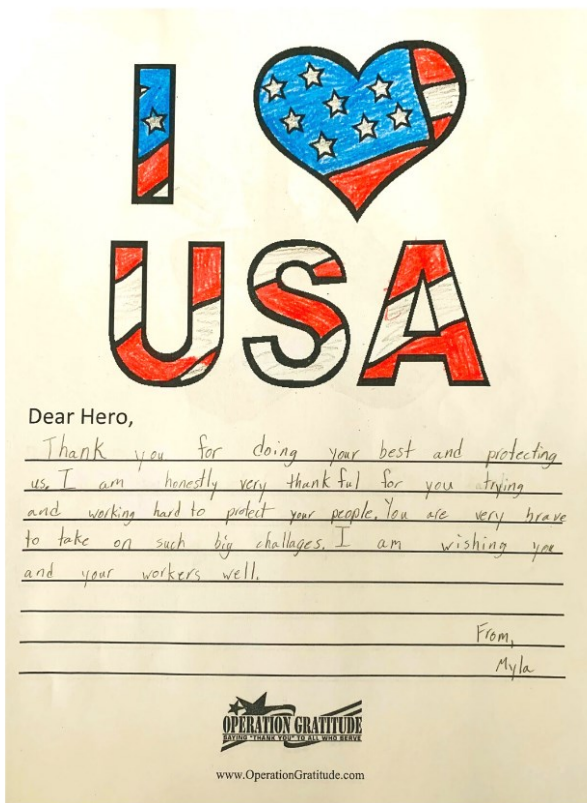 I
USA
Dear Hero,
Thank you for doing your best and protecting
us. I am honestly very thankful for you atrying
and working hard to protect your people. You are very brave
to take on such big challages. I am wishing you
and your workers well.
From,
Myla
OPERATION GRATITUDE
SAYING "THANK YOU" TO ALL WHO SERVE
www.OperationGratitude.com